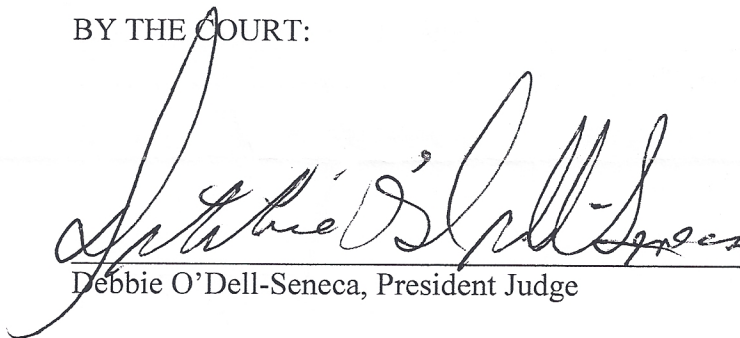 BY THE COURT:
Debbie O'Dell-Seneca
Debbie O’Dell-Seneca, President Judge